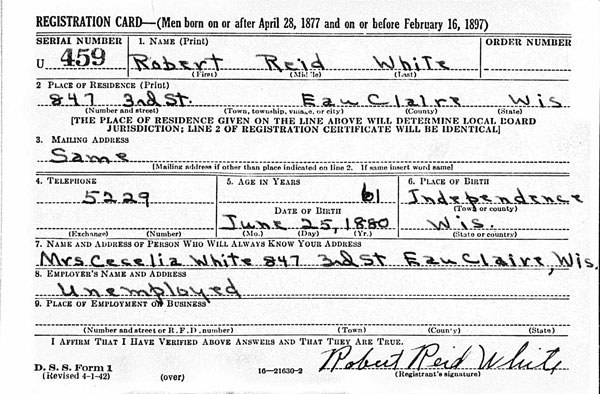 REGISTRATION CARD—(Men born on or after April 28, 1877 and on or before February 16, 1897)
SERIAL NUMBER 1. NAME (Print) ORDER NUMBER
U 459 Robert Reid White
(First) (Middle) (Last)
2 PLACE OF RESIDENCE (Print)
847 3rd St. Eau Claire Wis
(Number and street) (Town, township, village, or city) (County) (State)
[THE PLACE OF RESIDENCE GIVEN ON THE LINE ABOVE WILL DETERMINE LOCAL BOARD
JURISDICTION; LINE 2 OF REGISTRATION CERTIFICATE WILL BE IDENTICAL]
3. MAILING ADDRESS
Same
[Mailing address if other than place indicated on line 2. If same insert word same]
4. TELEPHONE 5. AGE IN YEARS 6. PLACE OF BIRTH
5229 61 Independence
DATE OF BIRTH (Town or county)
June 25, 1880 Wis.
(Exchange) (Number) (Mo.) (Day) (Yr.) (State or country)
7. NAME AND ADDRESS OF PERSON WHO WILL ALWAYS KNOW YOUR ADDRESS
Mrs. Cecelia White 847 3rd St Eau Claire, Wis.
8. EMPLOYER'S NAME AND ADDRESS
Unemployed
9. PLACE OF EMPLOYMENT OR BUSINESS
(Number and street or R.F.D. number) (Town) (County) (State)
I AFFIRM THAT I HAVE VERIFIED ABOVE ANSWERS AND THAT THEY ARE TRUE.
Robert Reid White
D. S. S. Form 1
(Revised 4-1-42) (over) 16—21630-2 (Registrant's signature)